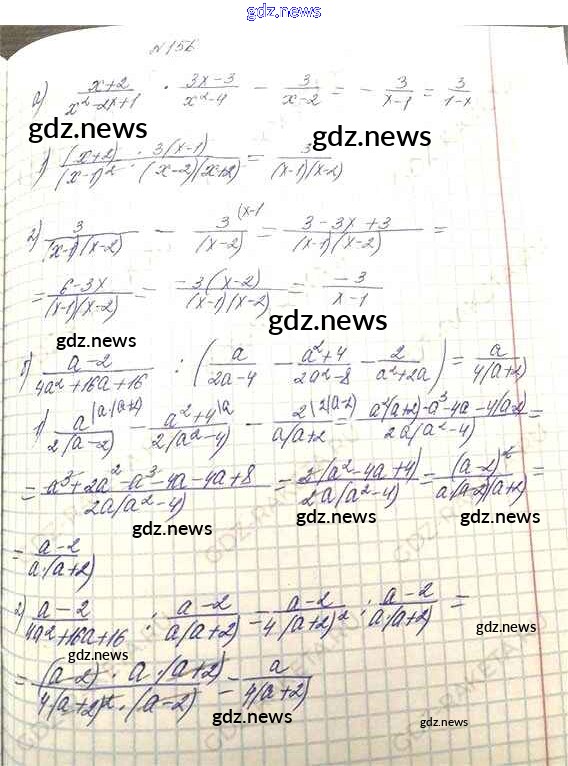 gdz.news
N 156
а) (x+2)/(x²-2x+1) · (3x-3)/(x²-4) - 3/(x-2) = - 3/(x-1) = 3/(1-x)
gdz.news
gdz.news
1) (x+2) · 3(x-1)/((x-1)² · (x-2)(x+2)) = 3/((x-1)(x-2))
2) 3/((x-1)(x-2)) - 3^(x-1)/(x-2) = (3-3x+3)/((x-1)(x-2)) =
= (6-3x)/((x-1)(x-2)) - -3(x-2)/((x-1)(x-2)) = -3/(x-1)
gdz.news
gdz.news
(a-2)/(4a²+16a+16) : (a/(2a-4) - (a²+4)/(2a²-8) - 2/(a²+2a)) = a/(4(a+2))
gdz.news
1) a/(2(a-2)) - (a²+4)/(2(a²-4)) - 2/(a(a+2)) = (a²(a+2)-a³-4a-4(a-2))/(2a(a²-4)) =
gdz.news
gdz.news
= (a³+2a²-a³-4a-4a+8)/(2a(a²-4)) = 2(a²-4a+4)/(2a(a²-4)) = (a-2)²/(a(a-2)(a+2)) =
gdz.news
gdz.news
= (a-2)/(a·(a+2))
2) (a-2)/(4a²+16a+16) : (a-2)/(a(a+2)) = (a-2)/(4(a+2)²) : (a-2)/(a·(a+2)) =
gdz.news
gdz.news
= (a-2) · a·(a+2)/(4(a+2)² · (a-2)) = a/(4(a+2))
gdz.news
gdz.news